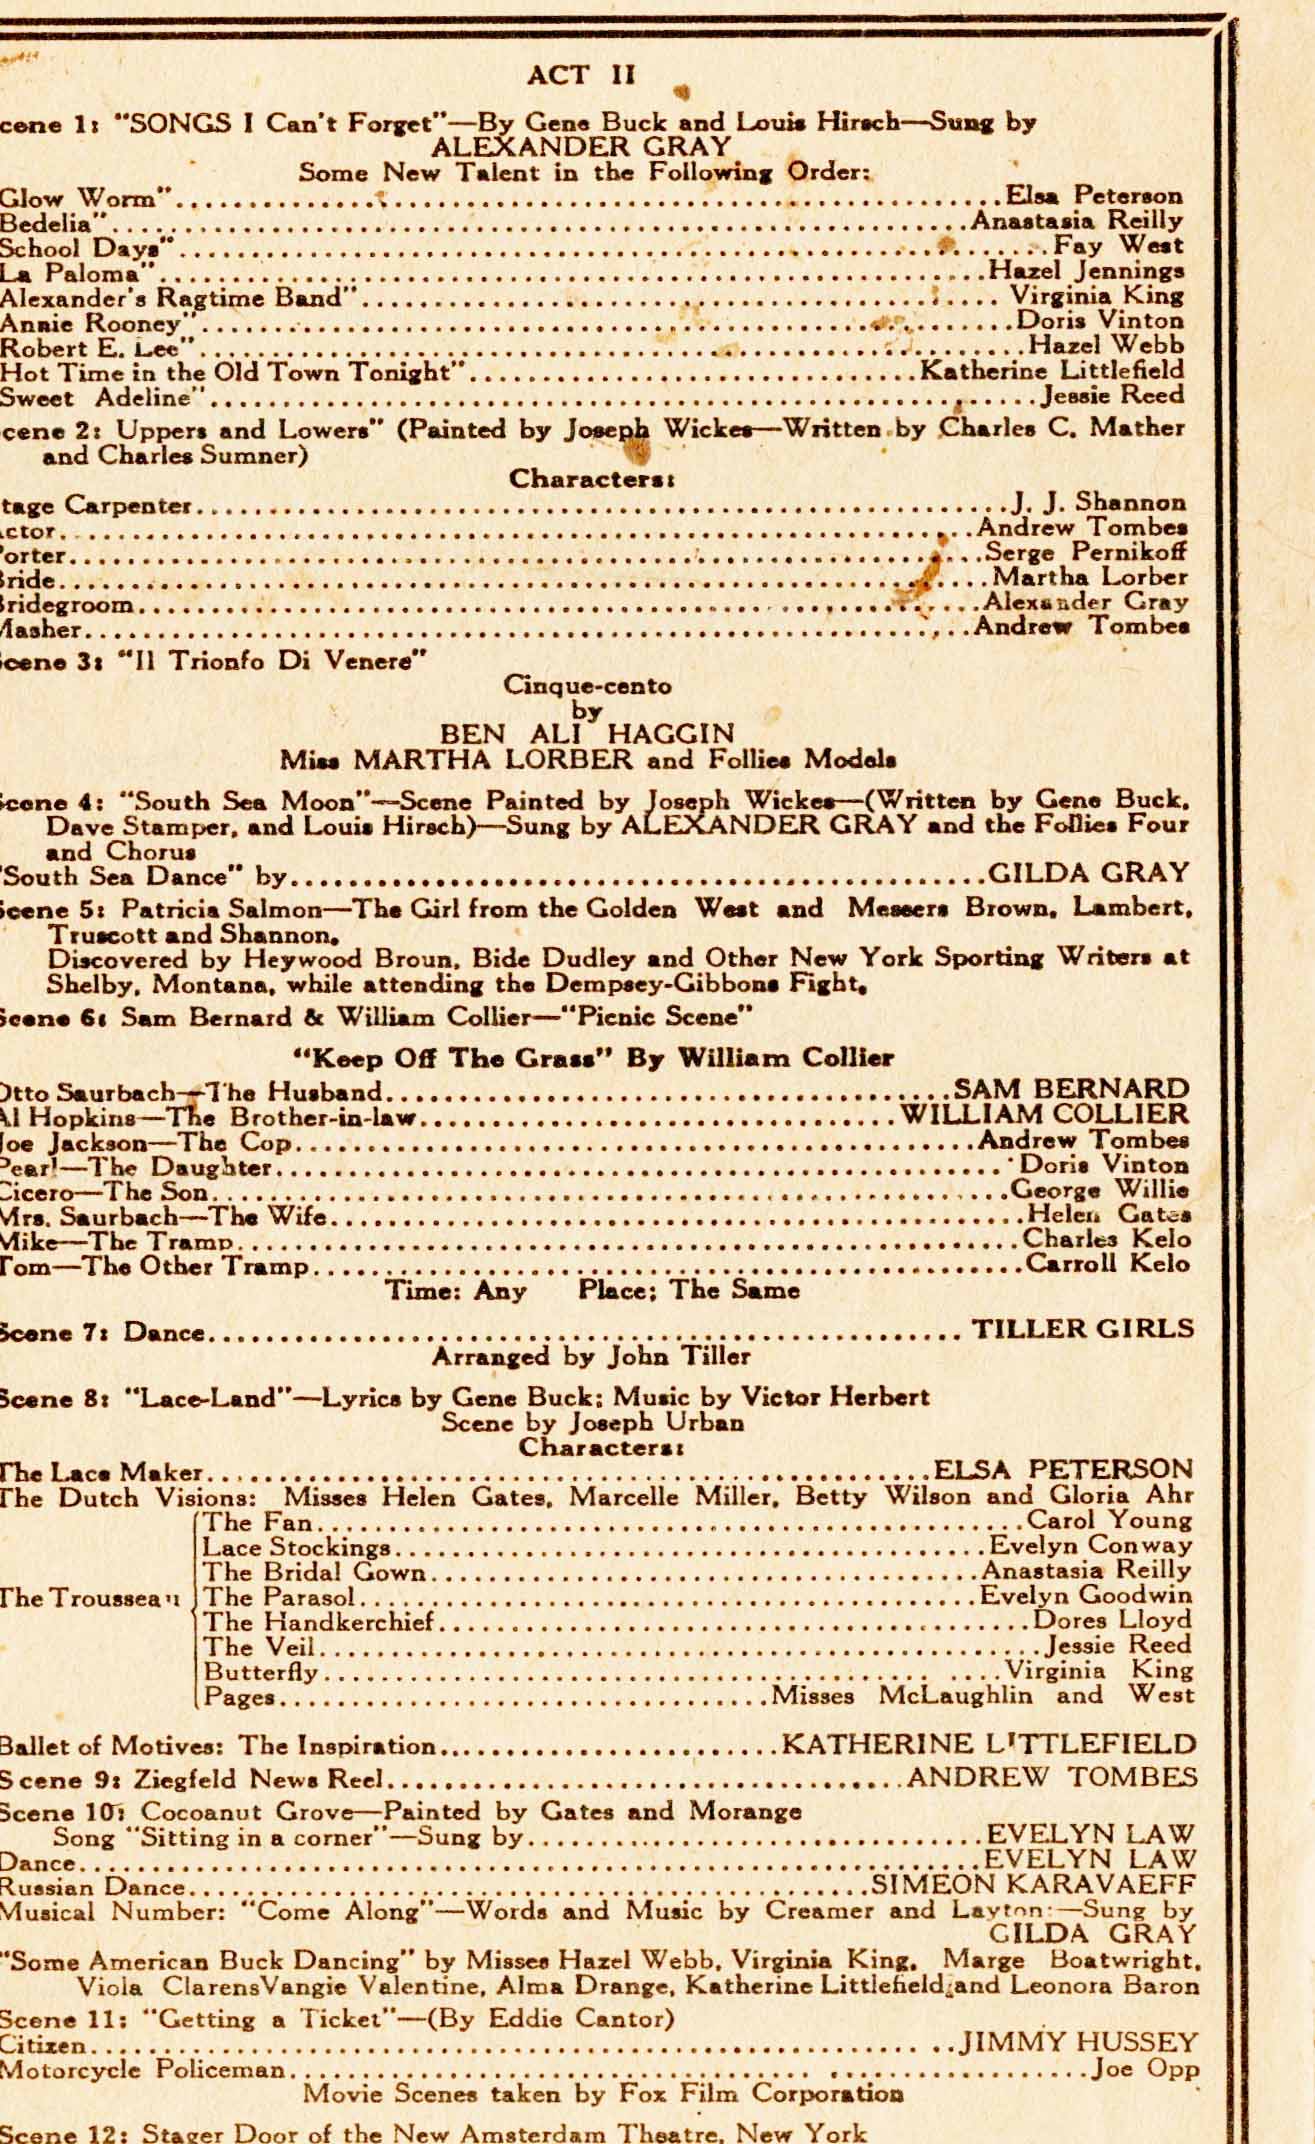 ACT II
cene 1: "SONGS I Can't Forget"—By Gene Buck and Louis Hirsch—Sung by
ALEXANDER GRAY
Some New Talent in the Following Order:
Glow Worm"........Elsa Peterson
Bedelia"........Anastasia Reilly
School Days"........Fay West
La Paloma"........Hazel Jennings
Alexander's Ragtime Band"........Virginia King
Annie Rooney"........Doris Vinton
Robert E. Lee"........Hazel Webb
Hot Time in the Old Town Tonight"........Katherine Littlefield
Sweet Adeline"........Jessie Reed
cene 2: Uppers and Lowers" (Painted by Joseph Wickes—Written by Charles C. Mather
and Charles Sumner)
Characters:
tage Carpenter........J. J. Shannon
ctor........Andrew Tombes
orter........Serge Pernikoff
ride........Martha Lorber
ridegroom........Alexander Gray
Masher........Andrew Tombes
cene 3: "Il Trionfo Di Venere"
Cinque-cento
by
BEN ALI HAGGIN
Miss MARTHA LORBER and Follies Models
Scene 4: "South Sea Moon"—Scene Painted by Joseph Wickes—(Written by Gene Buck,
Dave Stamper, and Louis Hirsch)—Sung by ALEXANDER GRAY and the Follies Four
and Chorus
"South Sea Dance" by........GILDA GRAY
Scene 5: Patricia Salmon—The Girl from the Golden West and Messers Brown, Lambert,
Truscott and Shannon.
Discovered by Heywood Broun, Bide Dudley and Other New York Sporting Writers at
Shelby, Montana, while attending the Dempsey-Gibbons Fight.
Scene 6: Sam Bernard & William Collier—"Picnic Scene"
"Keep Off The Grass" By William Collier
Otto Saurbach—The Husband........SAM BERNARD
Al Hopkins—The Brother-in-law........WILLIAM COLLIER
Joe Jackson—The Cop........Andrew Tombes
Pearl—The Daughter........Doris Vinton
Cicero—The Son........George Willie
Mrs. Saurbach—The Wife........Helen Gates
Mike—The Tramp........Charles Kelo
Tom—The Other Tramp........Carroll Kelo
Time: Any Place; The Same
Scene 7: Dance........TILLER GIRLS
Arranged by John Tiller
Scene 8: "Lace-Land"—Lyrics by Gene Buck; Music by Victor Herbert
Scene by Joseph Urban
Characters:
The Lace Maker........ELSA PETERSON
The Dutch Visions: Misses Helen Gates, Marcelle Miller, Betty Wilson and Gloria Ahr
The Fan........Carol Young
Lace Stockings........Evelyn Conway
The Bridal Gown........Anastasia Reilly
The Trousseau The Parasol........Evelyn Goodwin
The Handkerchief........Dores Lloyd
The Veil........Jessie Reed
Butterfly........Virginia King
Pages........Misses McLaughlin and West
Ballet of Motives: The Inspiration........KATHERINE LITTLEFIELD
Scene 9: Ziegfeld News Reel........ANDREW TOMBES
Scene 10: Cocoanut Grove—Painted by Gates and Morange
Song "Sitting in a corner"—Sung by........EVELYN LAW
Dance........EVELYN LAW
Russian Dance........SIMEON KARAVAEFF
Musical Number: "Come Along"—Words and Music by Creamer and Layton:—Sung by
GILDA GRAY
"Some American Buck Dancing" by Misses Hazel Webb, Virginia King, Marge Boatwright,
Viola ClarensVangie Valentine, Alma Drange, Katherine Littlefield and Leonora Baron
Scene 11: "Getting a Ticket"—(By Eddie Cantor)
Citizen........JIMMY HUSSEY
Motorcycle Policeman........Joe Opp
Movie Scenes taken by Fox Film Corporation
Scene 12: Stager Door of the New Amsterdam Theatre, New York